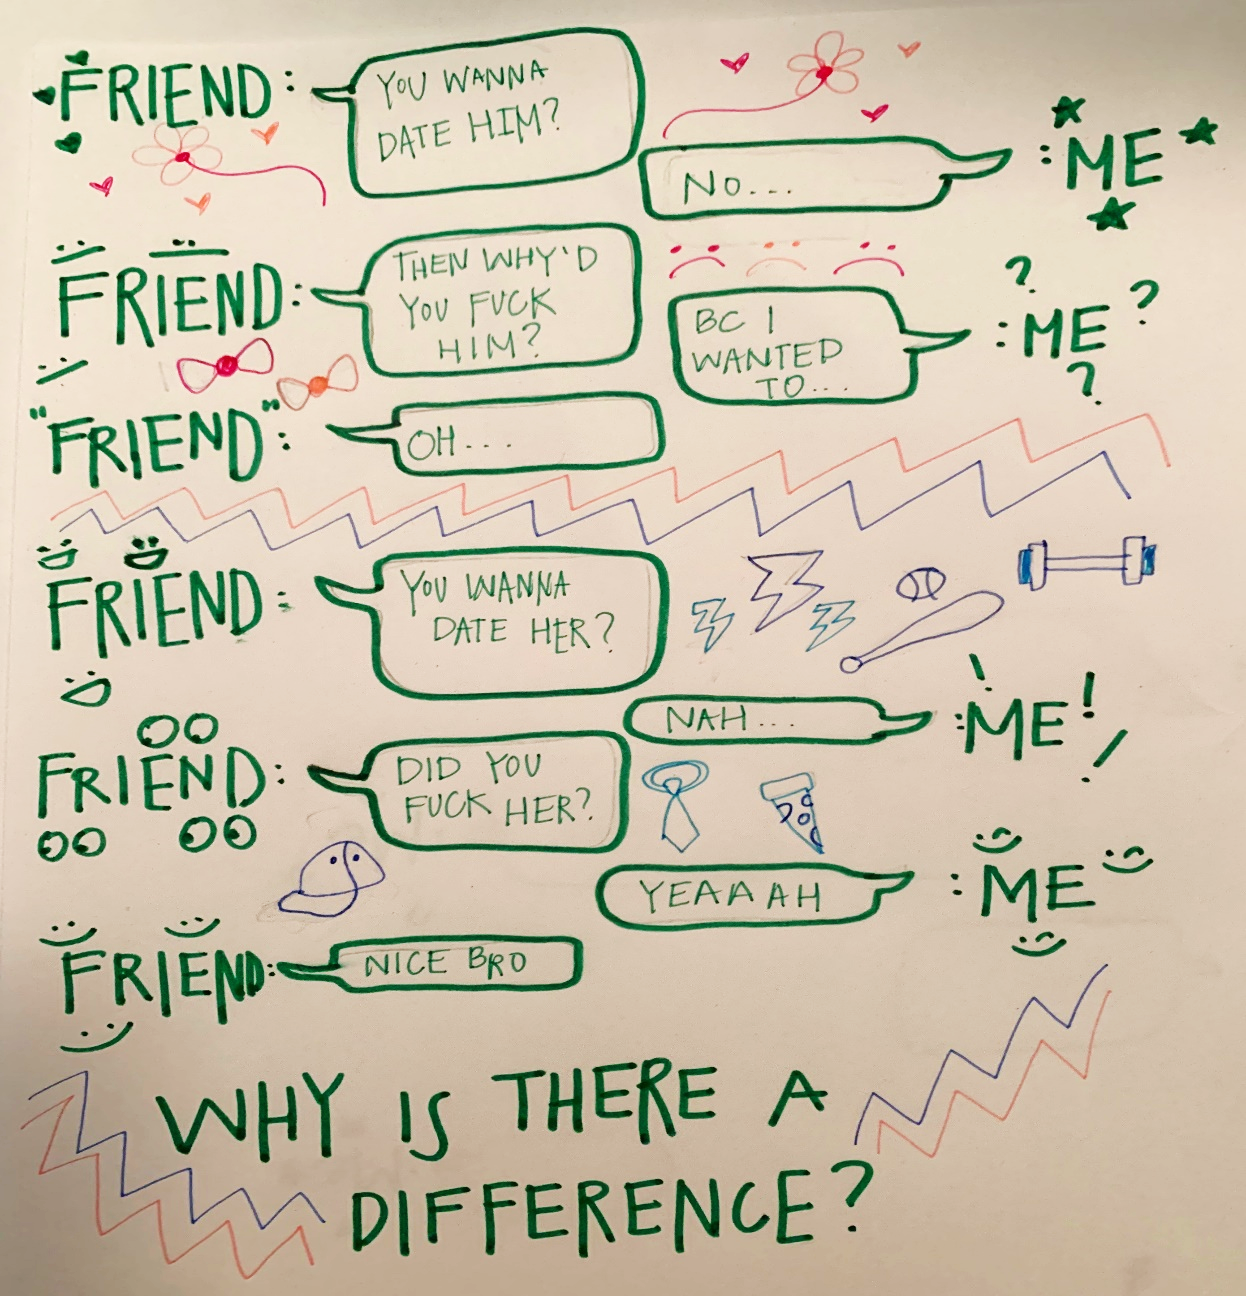 FRIEND:
YOU WANNA
DATE HIM?
NO...
:ME
FRIEND:
THEN WHY'D
YOU FUCK
HIM?
BC I
WANTED
TO...
? :ME ? ?
"FRIEND":
OH...
FRIEND:
YOU WANNA
DATE HER?
NAH...
:ME!
FRIEND:
DID YOU
FUCK HER?
YEAAAH
:ME
FRIEND:
NICE BRO
WHY IS THERE A
DIFFERENCE?